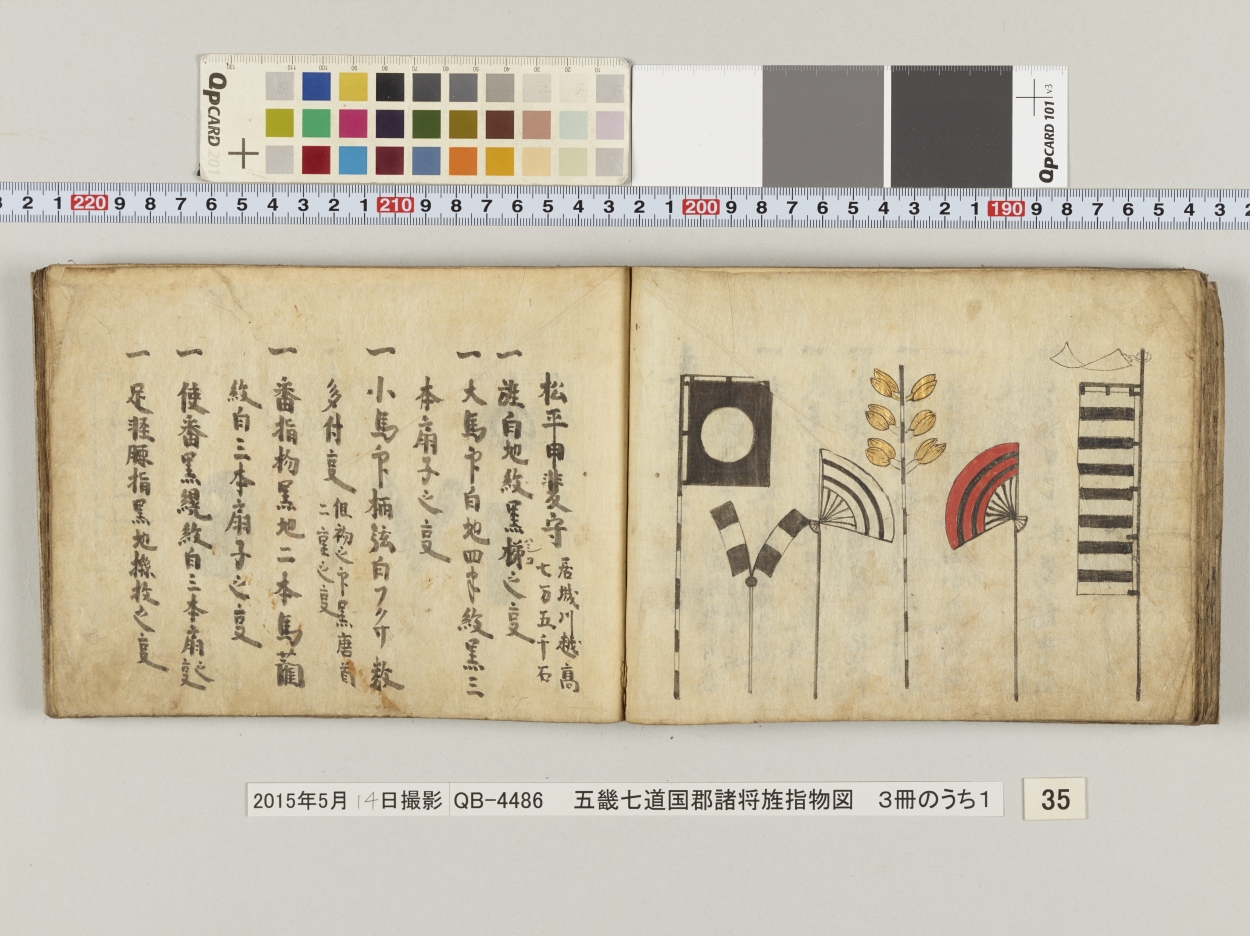 QPCARD 201
130 110 100 90 80 70 60 50 40 30 20 10
QPCARD 101 v3
3 2 1 220 9 8 7 6 5 4 3 2 1 210 9 8 7 6 5 4 3 2 1 200 9 8 7 6 5 4 3 2 1 190 9 8 7 6 5 4 3 2
松平甲斐守 居城川越高
七万五千石
一 旌白地紋黒梯之㕝
一 大馬印白地四半紋黒三
本扇子之㕝
一 小馬印柄弦白フクサ数
多付㕝 但初之印黒唐首
二重之㕝
一 番指物黒地二本馬藺
紋白三本扇子之㕝
一 使番黒縨紋白三本扇之㕝
一 足軽腰指黒地
之㕝
2015年5月14日撮影 QB-4486 五畿七道国郡諸将旌指物図 3冊のうち1
35